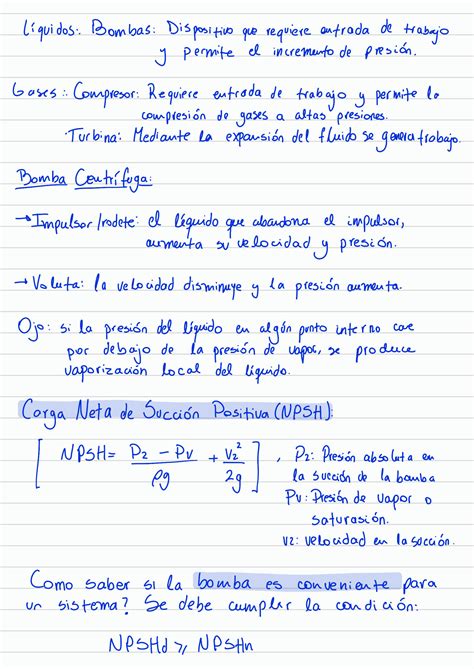 Líquidos: Bombas: Dispositivo que requiere entrada de trabajo
y permite el incremento de presión.
Gases: Compresor: Requiere entrada de trabajo y permite la
compresión de gases a altas presiones.
· Turbina: Mediante la expansión del fluido se genera trabajo.
Bomba Centrífuga:
→ Impulsor/rodete: el líquido que abandona el impulsor,
aumenta su velocidad y presión.
→ Voluta: la velocidad disminuye y la presión aumenta.
Ojo: si la presión del líquido en algún punto interno cae
por debajo de la presión de vapor, se produce
vaporización local del líquido.
Carga Neta de Succión Positiva (NPSH):
[ NPSH = (P2 - Pv)/(ρg) + v2²/(2g) ] , P2: Presión absoluta en
la succión de la bomba
Pv: Presión de vapor o
saturasión.
v2: velocidad en la succión.
Como saber si la bomba es conveniente para
un sistema? Se debe cumplir la condición:
NPSHd ⩾ NPSHn